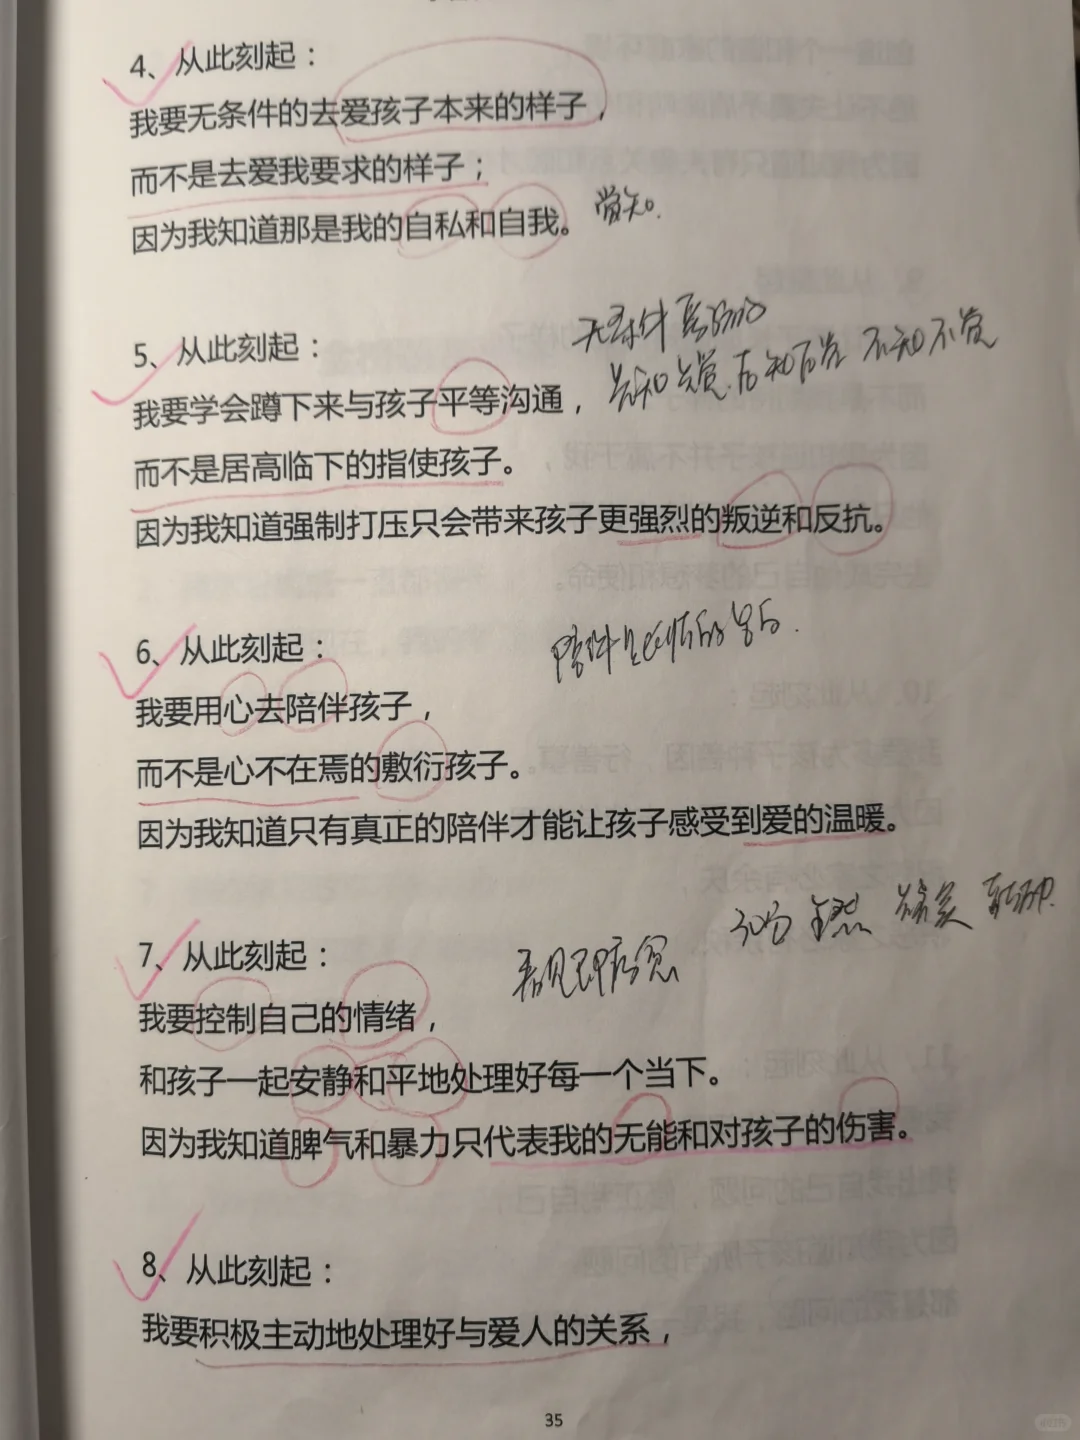 4、从此刻起：
我要无条件的去爱孩子本来的样子，
而不是去爱我要求的样子；
因为我知道那是我的自私和自我。
觉知.
5、从此刻起：
无条件
先知先觉.后知后觉 不知不觉
我要学会蹲下来与孩子平等沟通，
而不是居高临下的指使孩子。
因为我知道强制打压只会带来孩子更强烈的叛逆和反抗。
陪伴
6、从此刻起：
我要用心去陪伴孩子，
而不是心不在焉的敷衍孩子。
因为我知道只有真正的陪伴才能让孩子感受到爱的温暖。
看见即疗愈
7、从此刻起：
我要控制自己的情绪，
和孩子一起安静和平地处理好每一个当下。
因为我知道脾气和暴力只代表我的无能和对孩子的伤害。
8、从此刻起：
我要积极主动地处理好与爱人的关系，
35